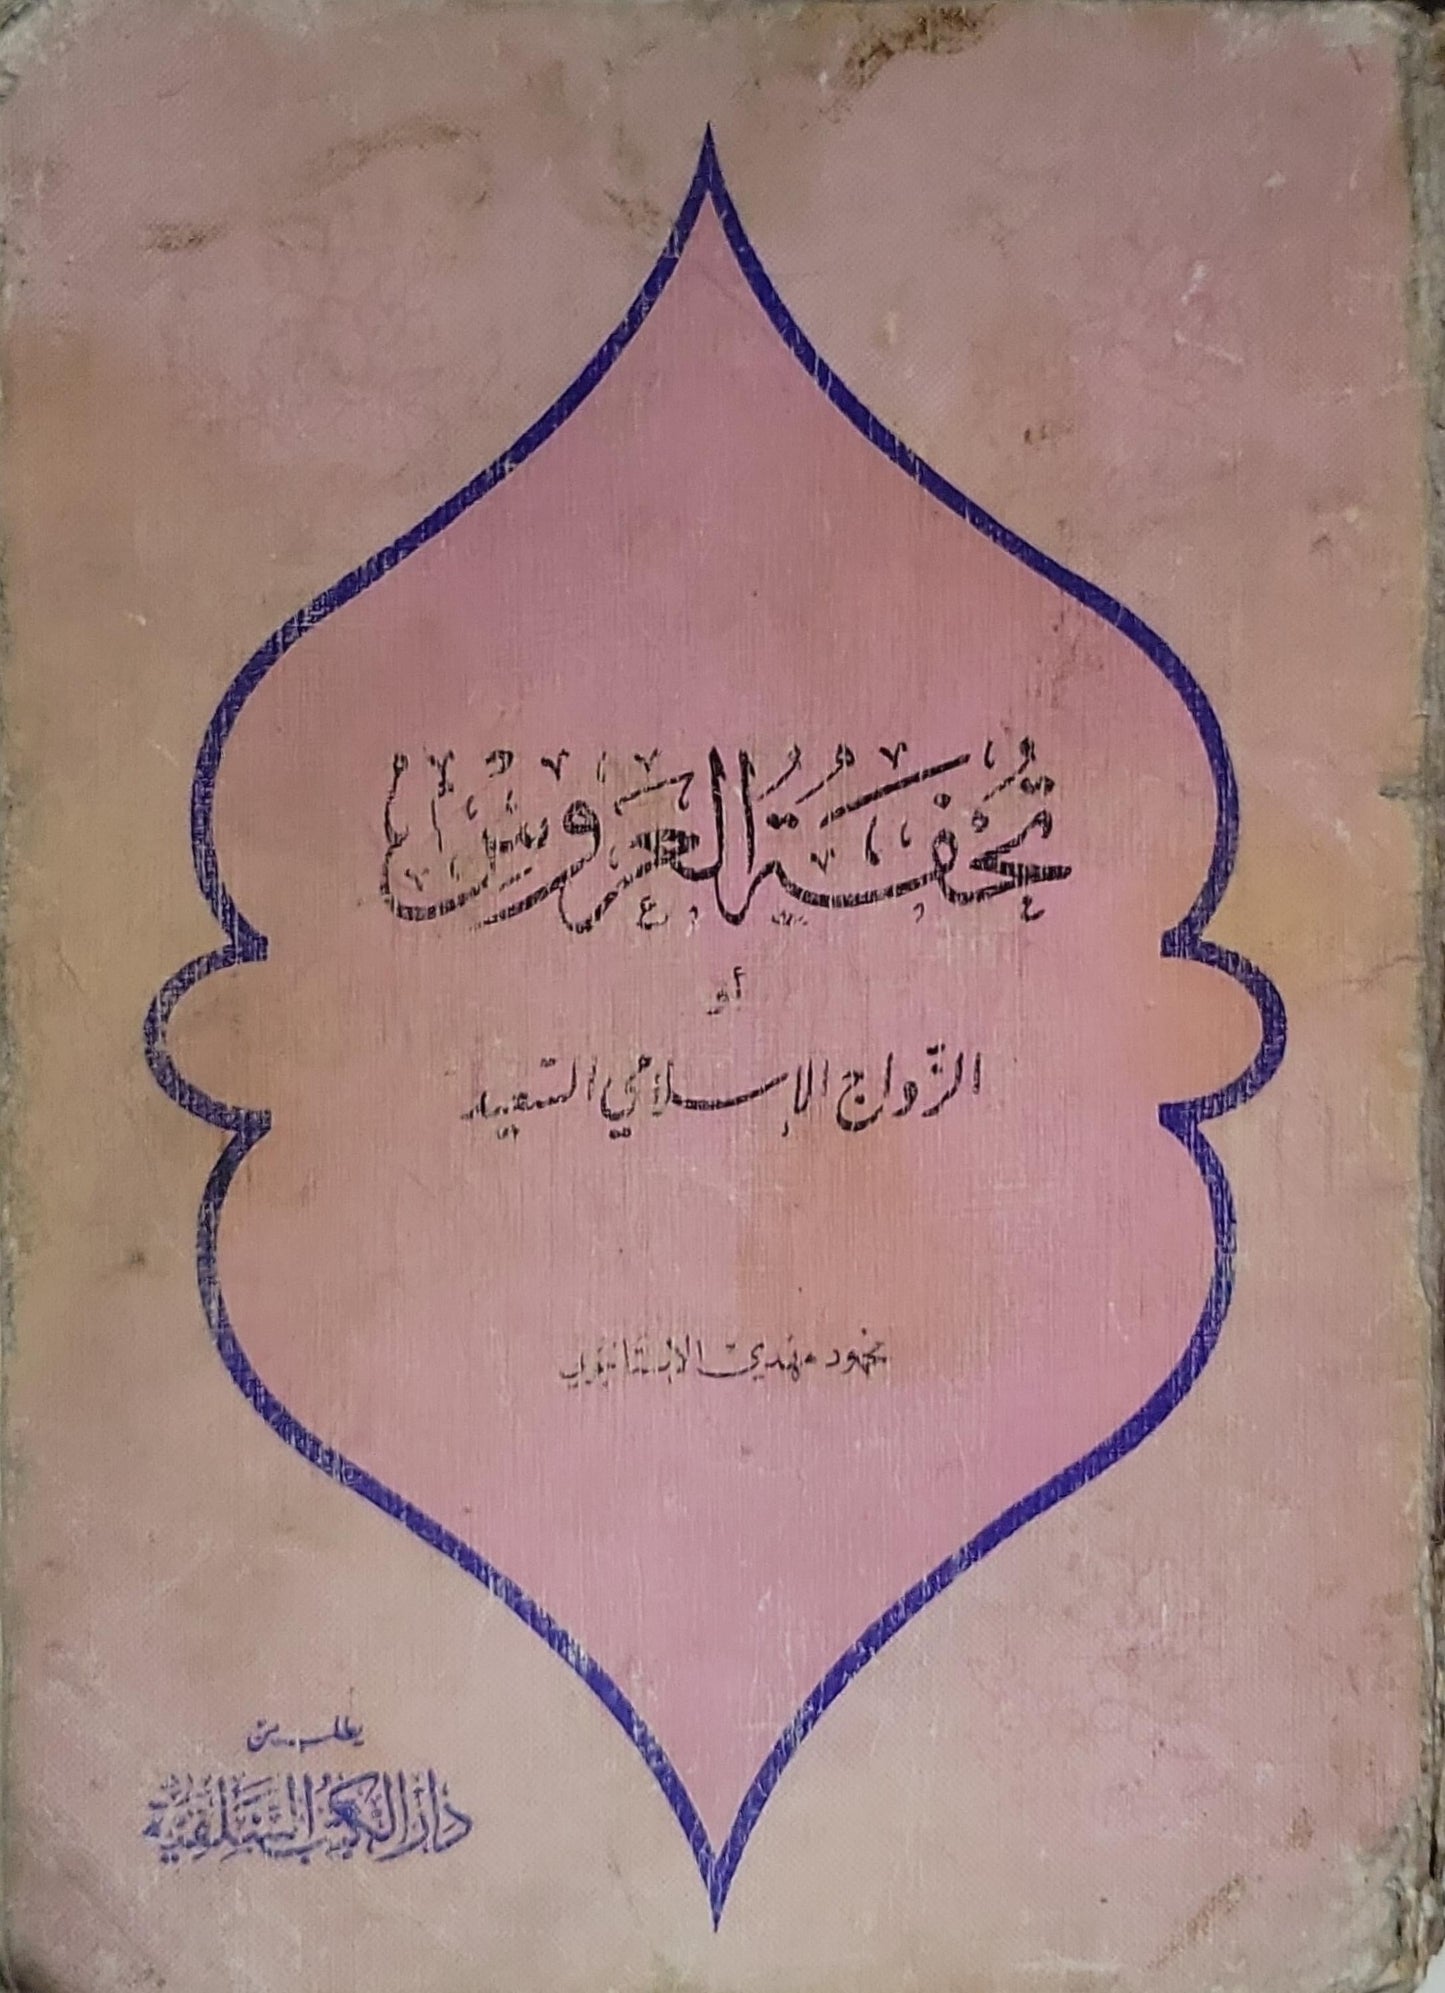 تُحْفَةُ العَرُوسِ
أو
الزّواج الإسلامي السّعيد
محمود مهدي الاستانبولي
يطلب من
دَارُ الكُتُبِ السَّلَفِيَّة